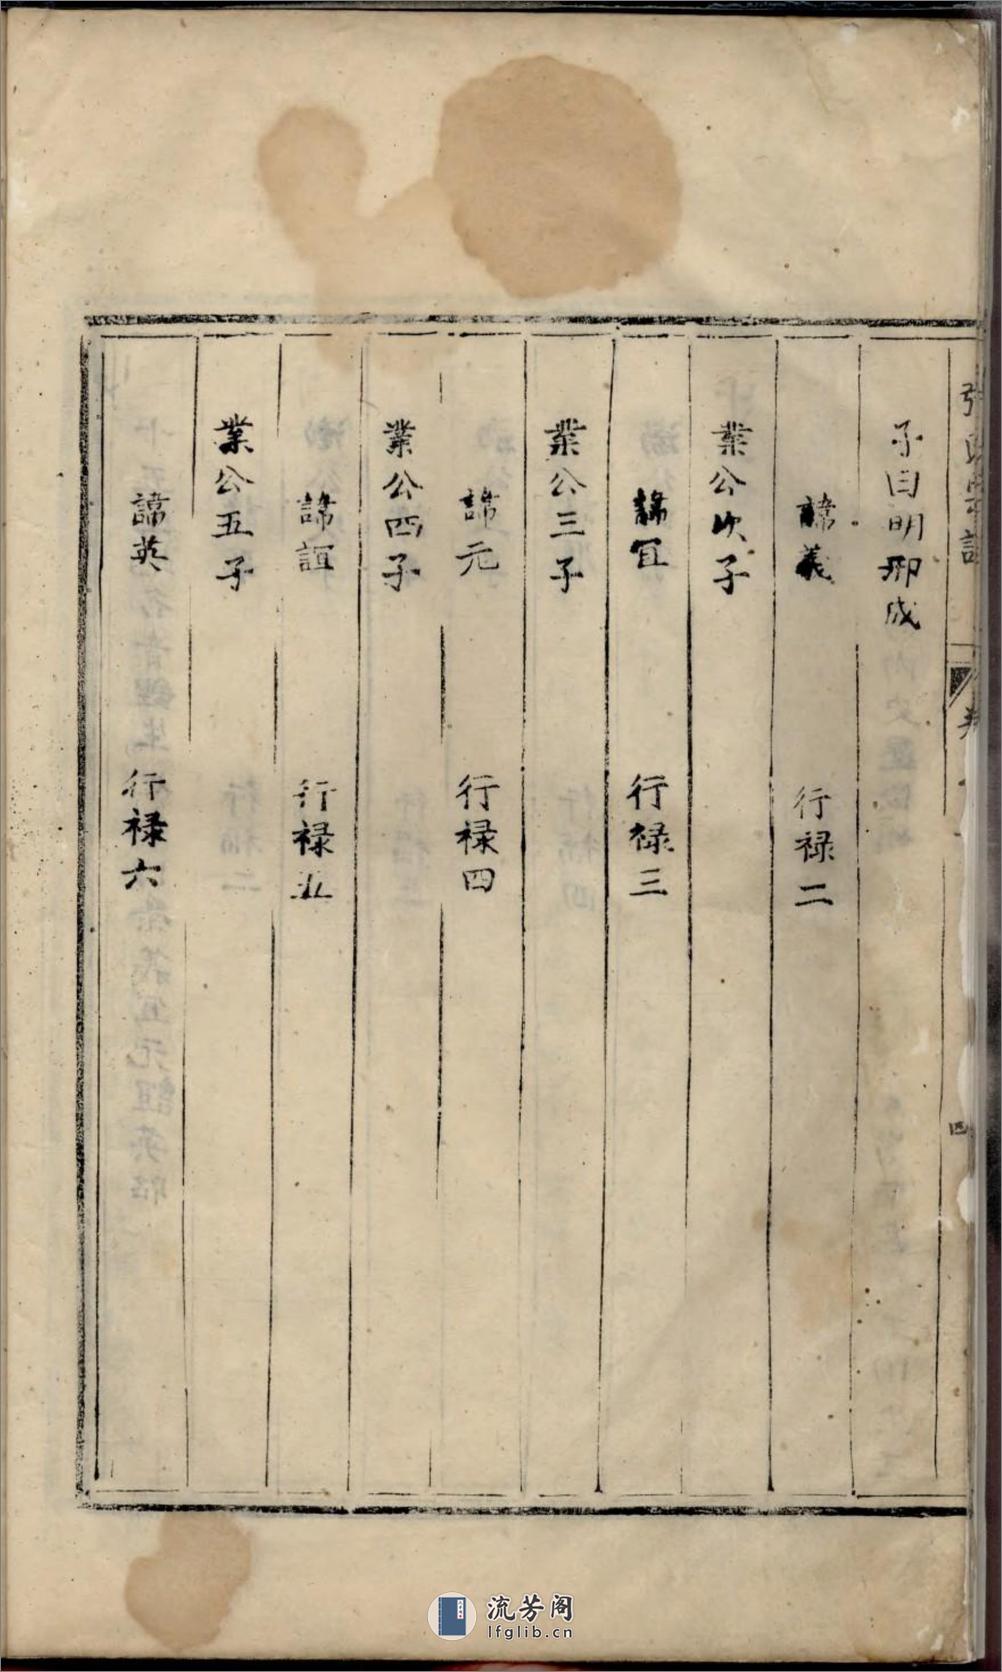 子四明邢成
諱義 行禄二
業公次子
諱宜 行禄三
業公三子
諱元 行禄四
業公四子
諱誼 行禄五
業公五子
諱英 行禄六
四
流芳阁
lfglib.cn